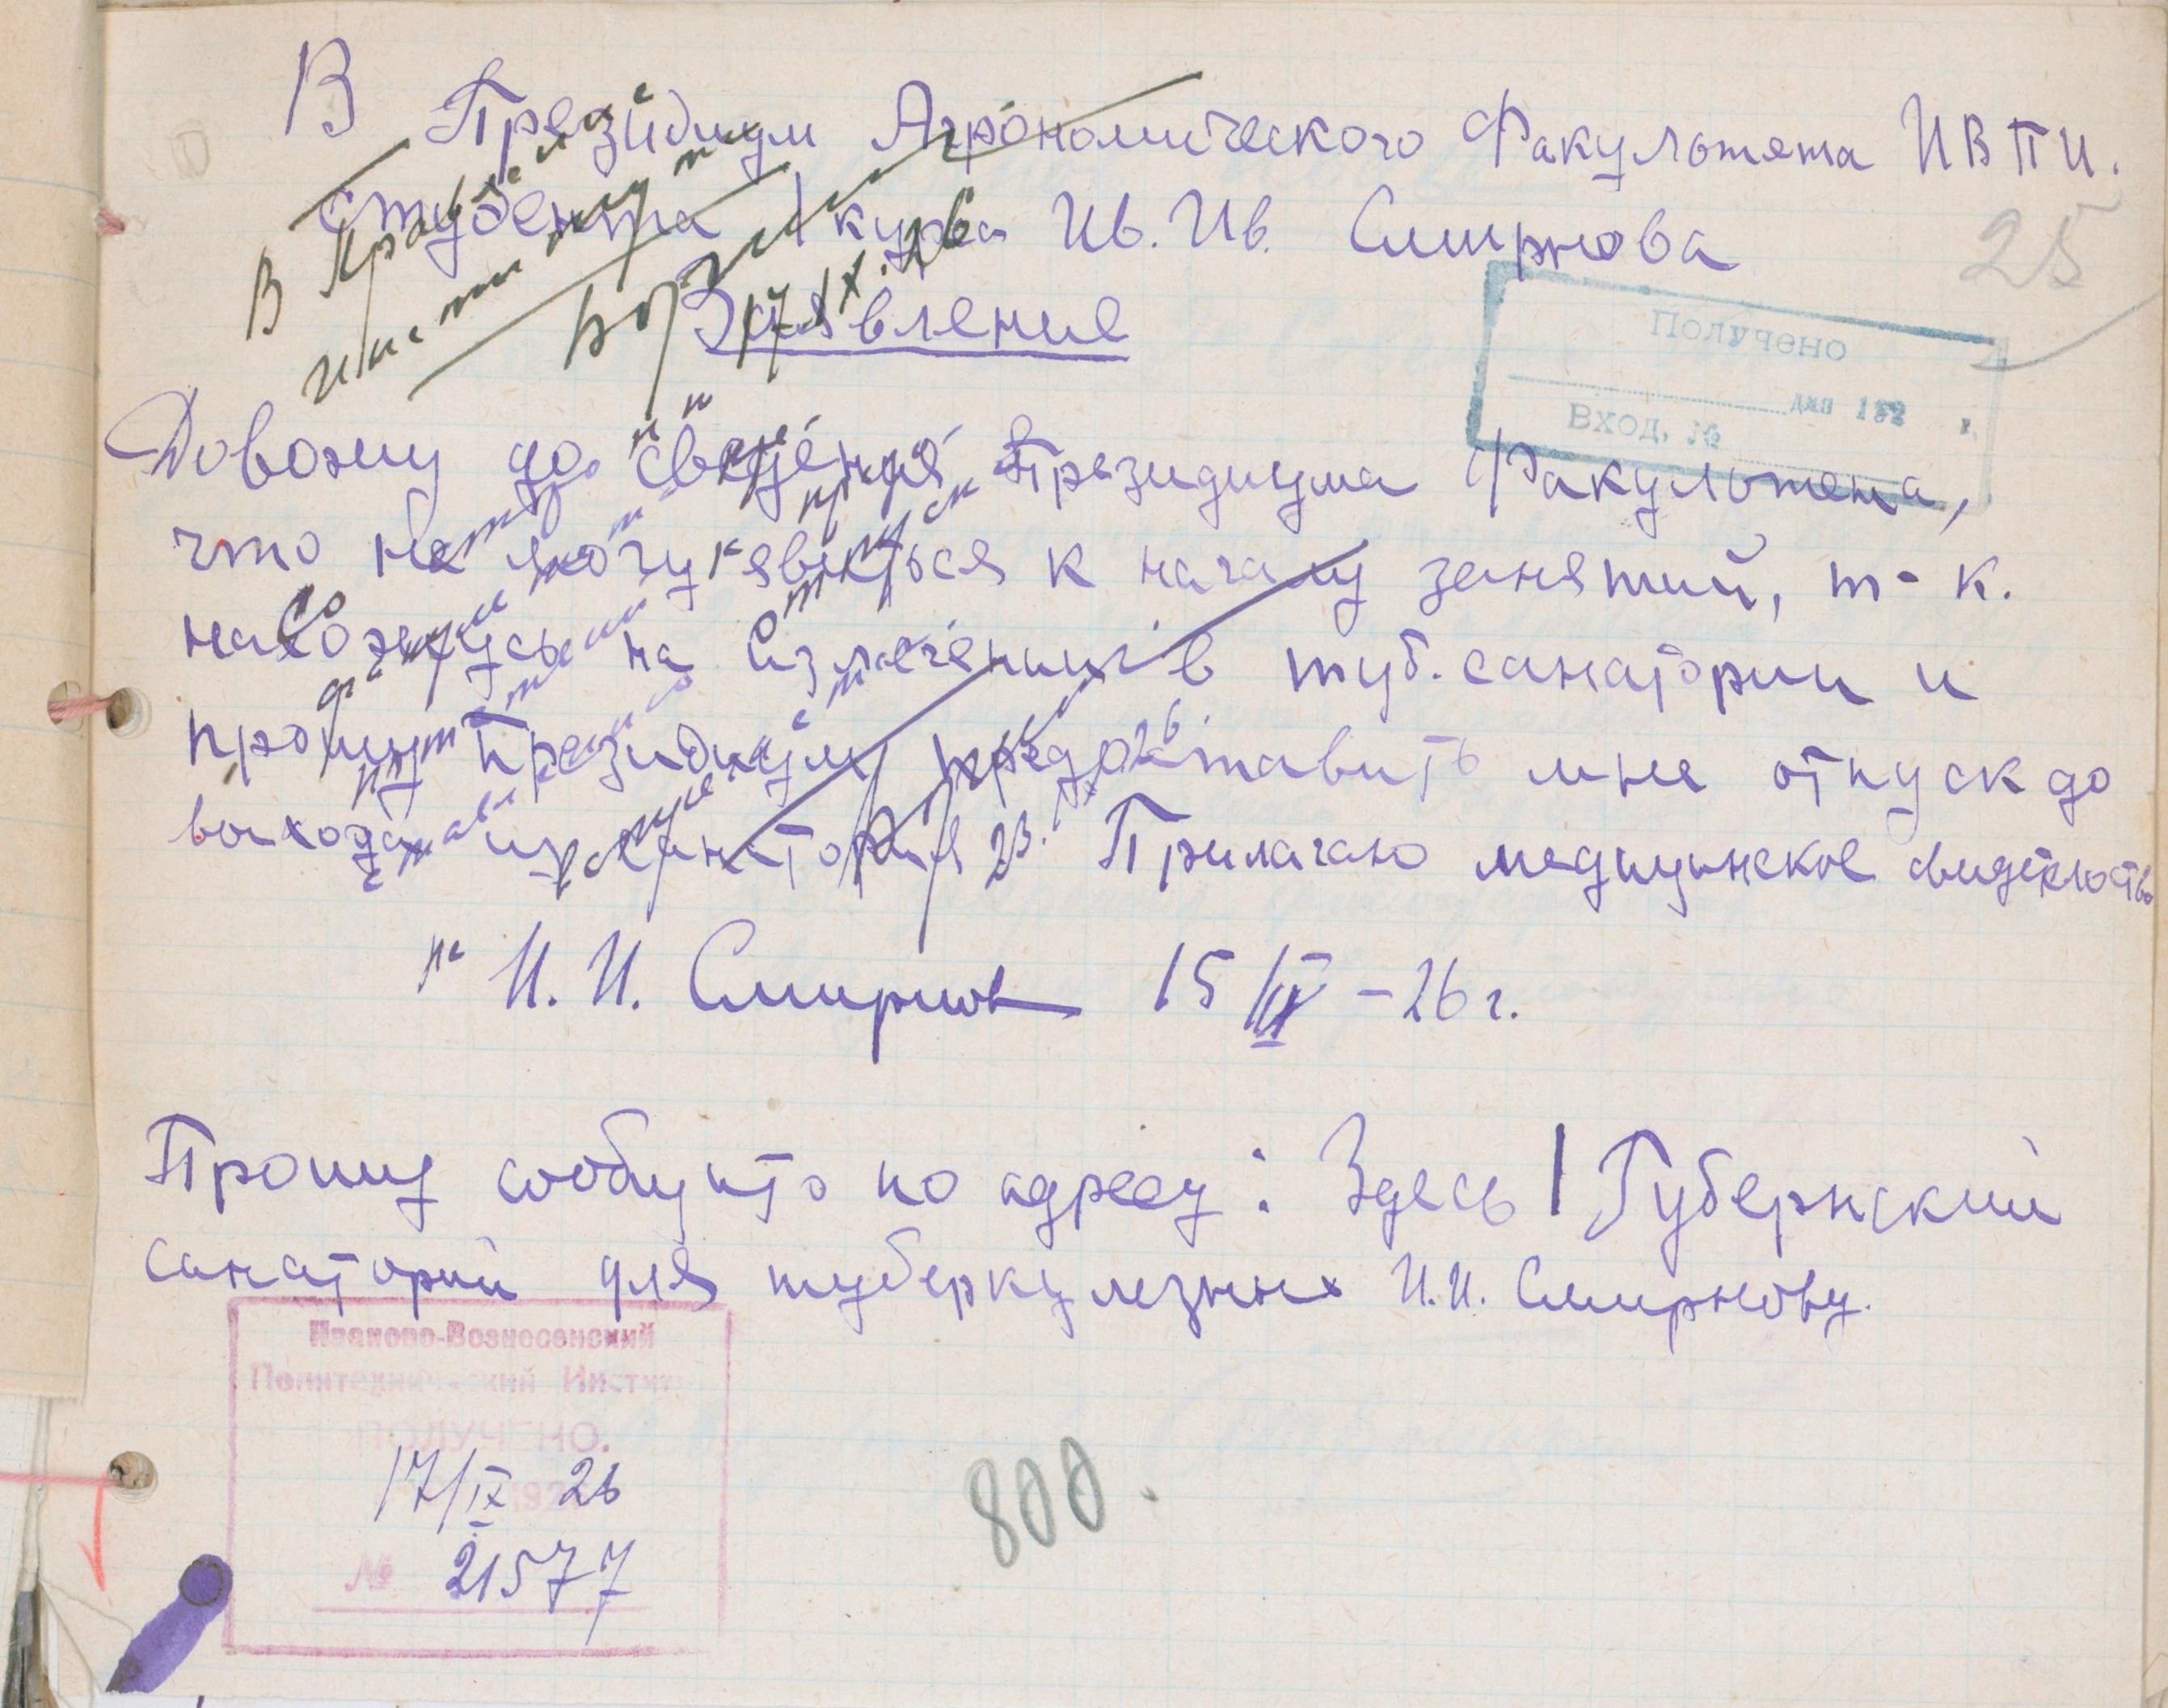 В Президиум Агрономического Факультета ИВПИ.
студента 1 курса Ив. Ив. Смирнова
Заявление
25
Получено
дня 192 г.
Вход. №
Довожу до сведения Президиума Факультета,
что не могу явиться к началу занятий, т-к.
нахожусь на излечении в туб. санатории и
прошу Президиум предоставить мне отпуск до
выхода из санатория. Прилагаю медицинское свидетельство
И. И. Смирнов 15/IX – 26 г.
Прошу сообщить по адресу: Здесь | Губернский
санаторий для туберкулезных И.И. Смирнову.
В Правление
института
17.IX.26
Со
к
отпуск
Иваново-Вознесенский
Политехнический Институт
ПОЛУЧЕНО.
17/IX 26
№ 21577
800.